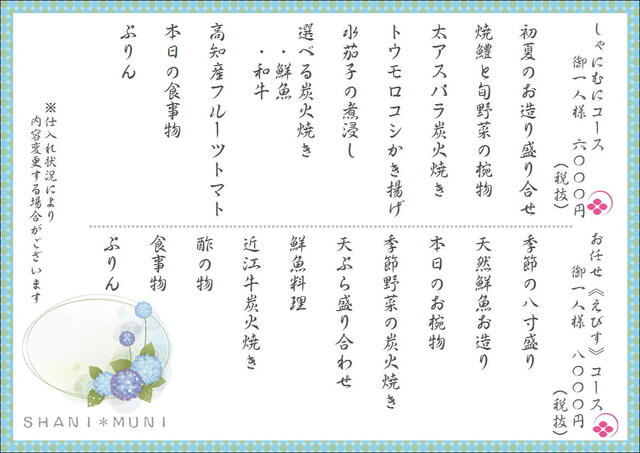 しゃにむにコース
御一人様 六〇〇〇円
(税抜)
初夏のお造り盛り合せ
焼鱧と旬野菜の椀物
太アスパラ炭火焼き
トウモロコシかき揚げ
水茄子の煮浸し
選べる炭火焼き
・鮮魚
・和牛
高知産フルーツトマト
本日の食事物
ぷりん
※仕入れ状況により
内容変更する場合がございます
お任せ《えびす》コース
御一人様 八〇〇〇円
(税抜)
季節の八寸盛り
天然鮮魚お造り
本日のお椀物
季節野菜の炭火焼き
天ぷら盛り合わせ
鮮魚料理
近江牛炭火焼き
酢の物
食事物
ぷりん
SHANI*MUNI